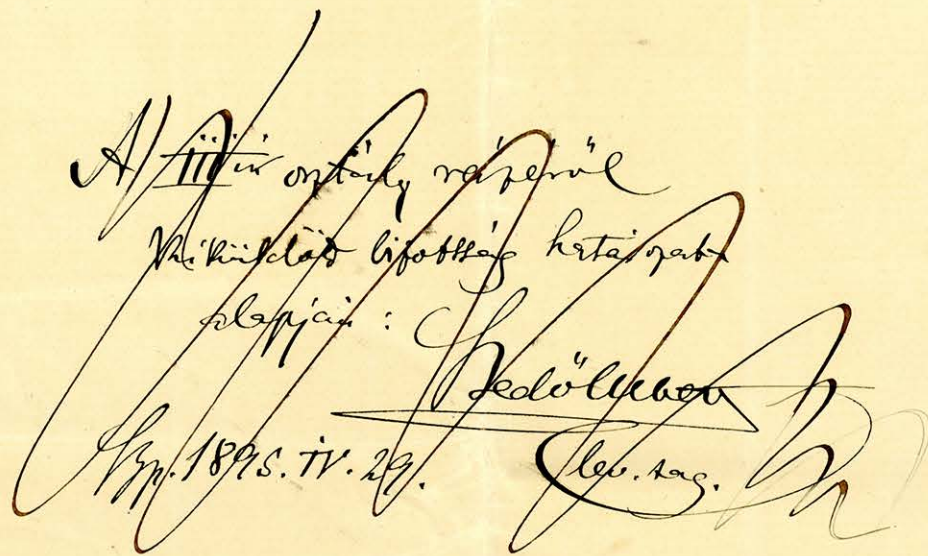 A III-ik osztály részéről
kiküldött bizottság határozata
alapján :
Szedő Albert
Bp. 1895. IV. 29.
lev. tag.